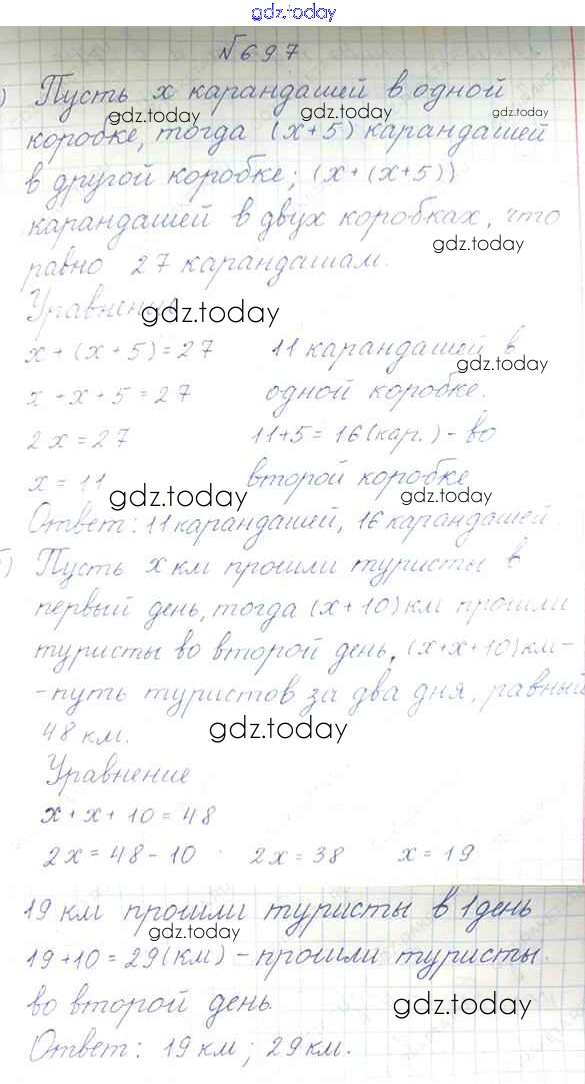 gdz.today
№697
) Пусть x карандашей в одной
gdz.today gdz.today gdz.today
коробке, тогда (x+5) карандашей
в другой коробке; (x+(x+5))
карандашей в двух коробках, что
gdz.today
равно 27 карандашам.
Уравнение
gdz.today
x+(x+5)=27 11 карандашей в
gdz.today
x+x+5=27 одной коробке.
2x=27 11+5=16(кар.)-во
x=11 второй коробке
gdz.today gdz.today
Ответ: 11 карандашей, 16 карандашей.
) Пусть x км прошли туристы в
первый день, тогда (x+10) км прошли
туристы во второй день, (x+x+10) км-
-путь туристов за два дня, равный
48 км.
gdz.today
Уравнение
x+x+10=48
2x=48-10 2x=38 x=19
19 км прошли туристы в 1 день
gdz.today gdz.today
19+10=29(км)-прошли туристы
во второй день.
gdz.today
Ответ: 19 км; 29 км.